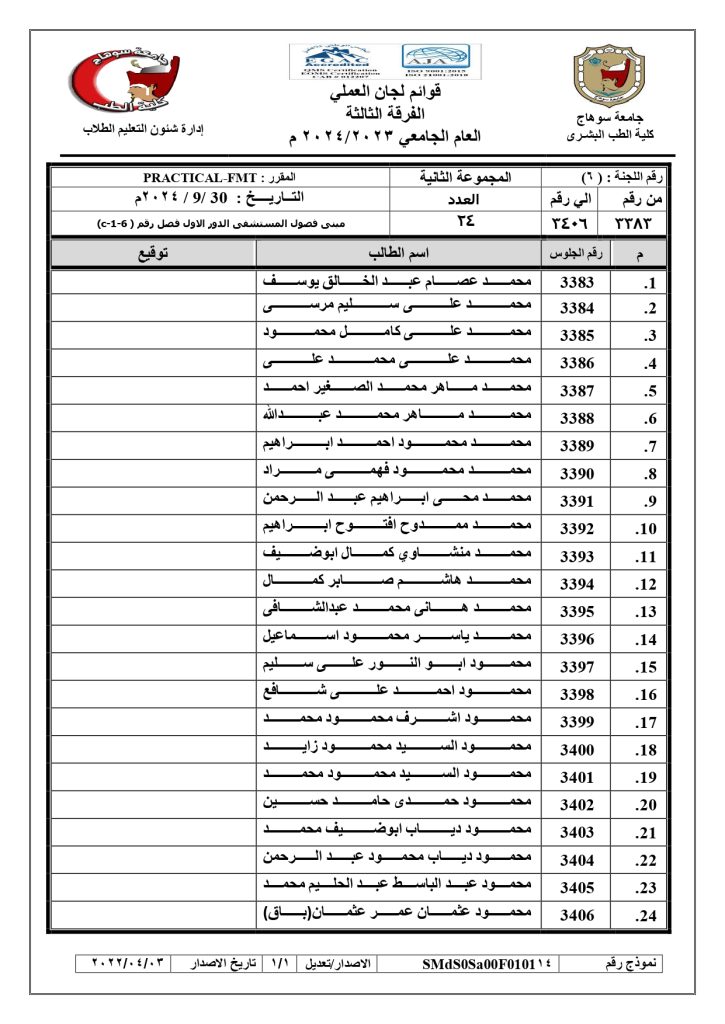 جامعة سوهاج
كلية الطب
EGAC
Accredited
QMS Certification
EOMS Certification
CAB # 012207
AJA
ISO 9001:2015
ISO 21001:2018
جامعة سوهاج
كلية الطب البشرى
قوائم لجان العملي
الفرقة الثالثة
العام الجامعي ٢٠٢٤/٢٠٢٣ م
إدارة شئون التعليم الطلاب
رقم اللجنة : ( ٦) المجموعة الثانية المقرر : PRACTICAL-FMT
من رقم الي رقم العدد التــاريــــخ : 30 /9/ ٢٠٢٤م
٣٣٨٣ ٣٤٠٦ ٢٤ مبنى فصول المستشفى الدور الاول فصل رقم ( c-1-6)
م رقم الجلوس اسم الطالب توقيع
1. 3383 محمد عصام عبد الخالق يوسف
2. 3384 محمد على سليم مرسى
3. 3385 محمد على كامل محمود
4. 3386 محمد على محمد على
5. 3387 محمد ماهر محمد الصغير احمد
6. 3388 محمد ماهر محمد عبدالله
7. 3389 محمد محمود احمد ابراهيم
8. 3390 محمد محمود فهمى مراد
9. 3391 محمد محى ابراهيم عبد الرحمن
10. 3392 محمد ممدوح افتوح ابراهيم
11. 3393 محمد منشاوي كمال ابوضيف
12. 3394 محمد هاشم صابر كمال
13. 3395 محمد هانى محمد عبدالشافى
14. 3396 محمد ياسر محمود اسماعيل
15. 3397 محمود ابو النور على سليم
16. 3398 محمود احمد على شافع
17. 3399 محمود اشرف محمود محمد
18. 3400 محمود السيد محمود زايد
19. 3401 محمود السيد محمود محمد
20. 3402 محمود حمدى حامد حسين
21. 3403 محمود دياب ابوضيف محمد
22. 3404 محمود دياب محمود عبد الرحمن
23. 3405 محمود عبد الباسط عبد الحليم محمد
24. 3406 محمود عثمان عمر عثمان(باق)
نموذج رقم SMdS0Sa00F010١١٤ الاصدار/تعديل ١/١ تاريخ الاصدار ٢٠٢٢/٠٤/٠٣